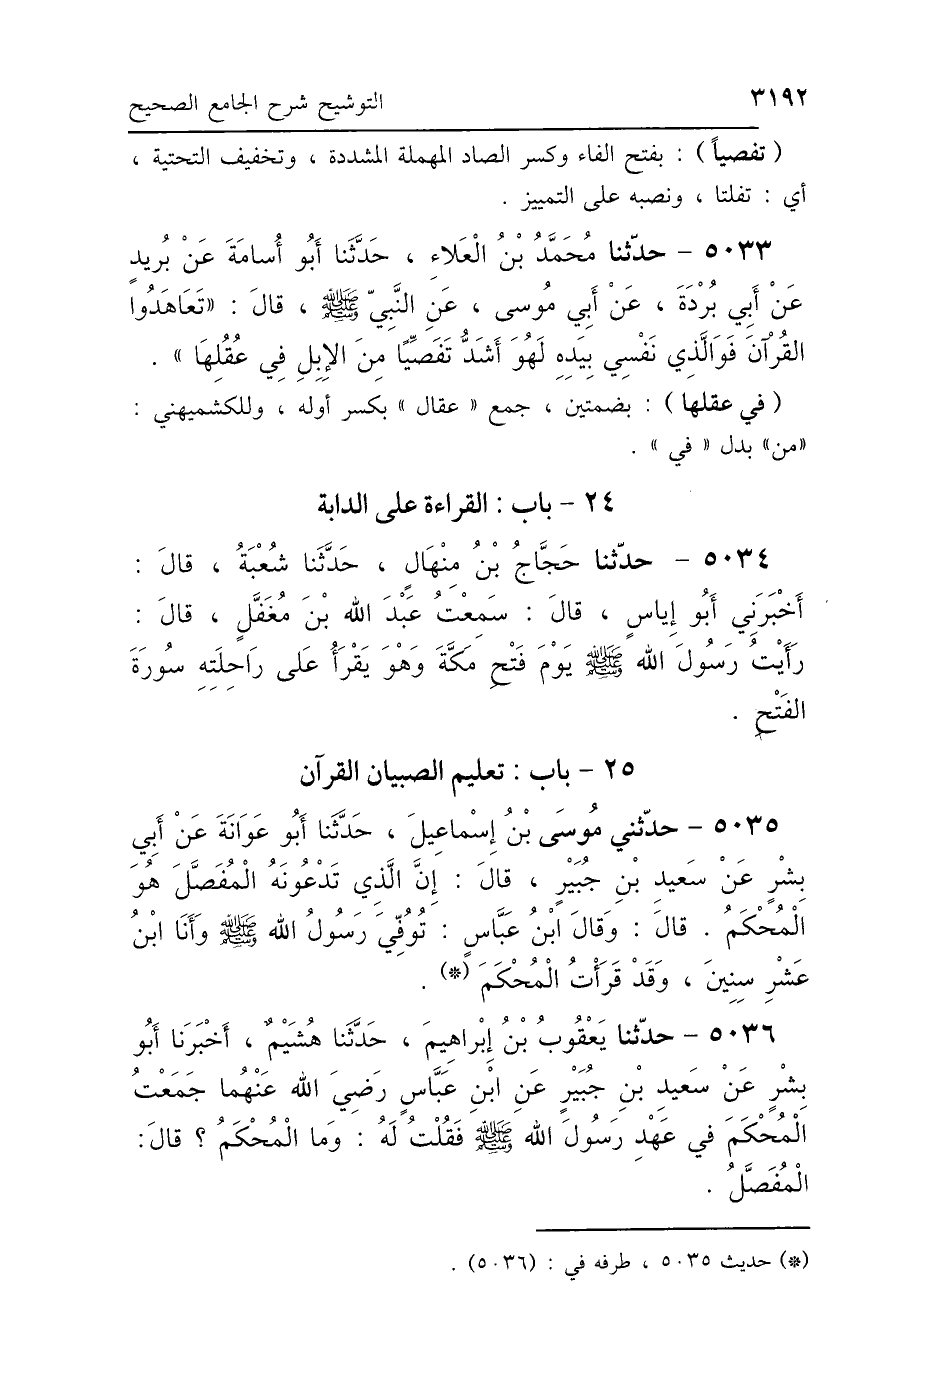 ٣١٩٢ التوشيح شرح الجامع الصحيح
( تفصياً ) : بفتح الفاء وكسر الصاد المهملة المشددة ، وتخفيف التحتية ،
أي : تفلتا ، ونصبه على التمييز .
٥٠٣٣ – حدّثنا مُحَمَّدُ بْنُ الْعَلاءِ ، حَدَّثَنا أَبُو أُسامَةَ عَنْ بُريدٍ
عَنْ أَبِي بُرْدَةَ ، عَنْ أَبِي مُوسى ، عَنِ النَّبِيّ ﷺ ، قالَ : «تَعَاهَدُوا
القُرْآنَ فَوَالَّذِي نَفْسِي بِيَدِهِ لَهُوَ أَشَدُّ تَفَصِّيًا مِنَ الإِبِلِ فِي عُقُلِهَا » .
( في عقلها ) : بضمتين ، جمع « عقال » بكسر أوله ، وللكشميهني :
«من» بدل « في » .
٢٤ – باب : القراءة على الدابة
٥٠٣٤ – حدّثنا حَجَّاجُ بْنُ مِنْهَالٍ ، حَدَّثَنا شُعْبَةُ ، قالَ :
أَخْبَرَنِي أَبُو إِياسٍ ، قالَ : سَمِعْتُ عَبْدَ الله بْنَ مُغَفَّلٍ ، قالَ :
رَأَيْتُ رَسُولَ الله ﷺ يَوْمَ فَتْحِ مَكَّةَ وَهْوَ يَقْرَأُ عَلى رَاحِلَتِهِ سُورَةَ
الفَتْحِ .
٢٥ – باب : تعليم الصبيان القرآن
٥٠٣٥ – حدّثني مُوسَى بْنُ إِسْماعِيلَ ، حَدَّثَنا أَبُو عَوَانَةَ عَنْ أَبِي
بِشْرٍ عَنْ سَعِيدِ بْنِ جُبَيْرٍ ، قالَ : إِنَّ الَّذِي تَدْعُونَهُ الْمُفَصَّلَ هُوَ
الْمُحْكَمُ . قالَ : وَقالَ ابْنُ عَبَّاسٍ : تُوُفِّيَ رَسُولُ الله ﷺ وَأَنا ابْنُ
عَشْرِ سِنِينَ ، وَقَدْ قَرَأْتُ الْمُحْكَمَ (*) .
٥٠٣٦ – حدّثنا يَعْقُوبُ بْنُ إِبْراهِيمَ ، حَدَّثَنا هُشَيْمٌ ، أَخْبَرَنا أَبُو
بِشْرٍ عَنْ سَعِيدِ بْنِ جُبَيْرٍ عَنِ ابْنِ عَبَّاسٍ رَضِيَ الله عَنْهُما جَمَعْتُ
الْمُحْكَمَ فِي عَهْدِ رَسُولَ الله ﷺ فَقُلْتُ لَهُ : وَما الْمُحْكَمُ ؟ قالَ:
الْمُفَصَّلُ .
(*) حديث ٥٠٣٥ ، طرفه في : (٥٠٣٦) .